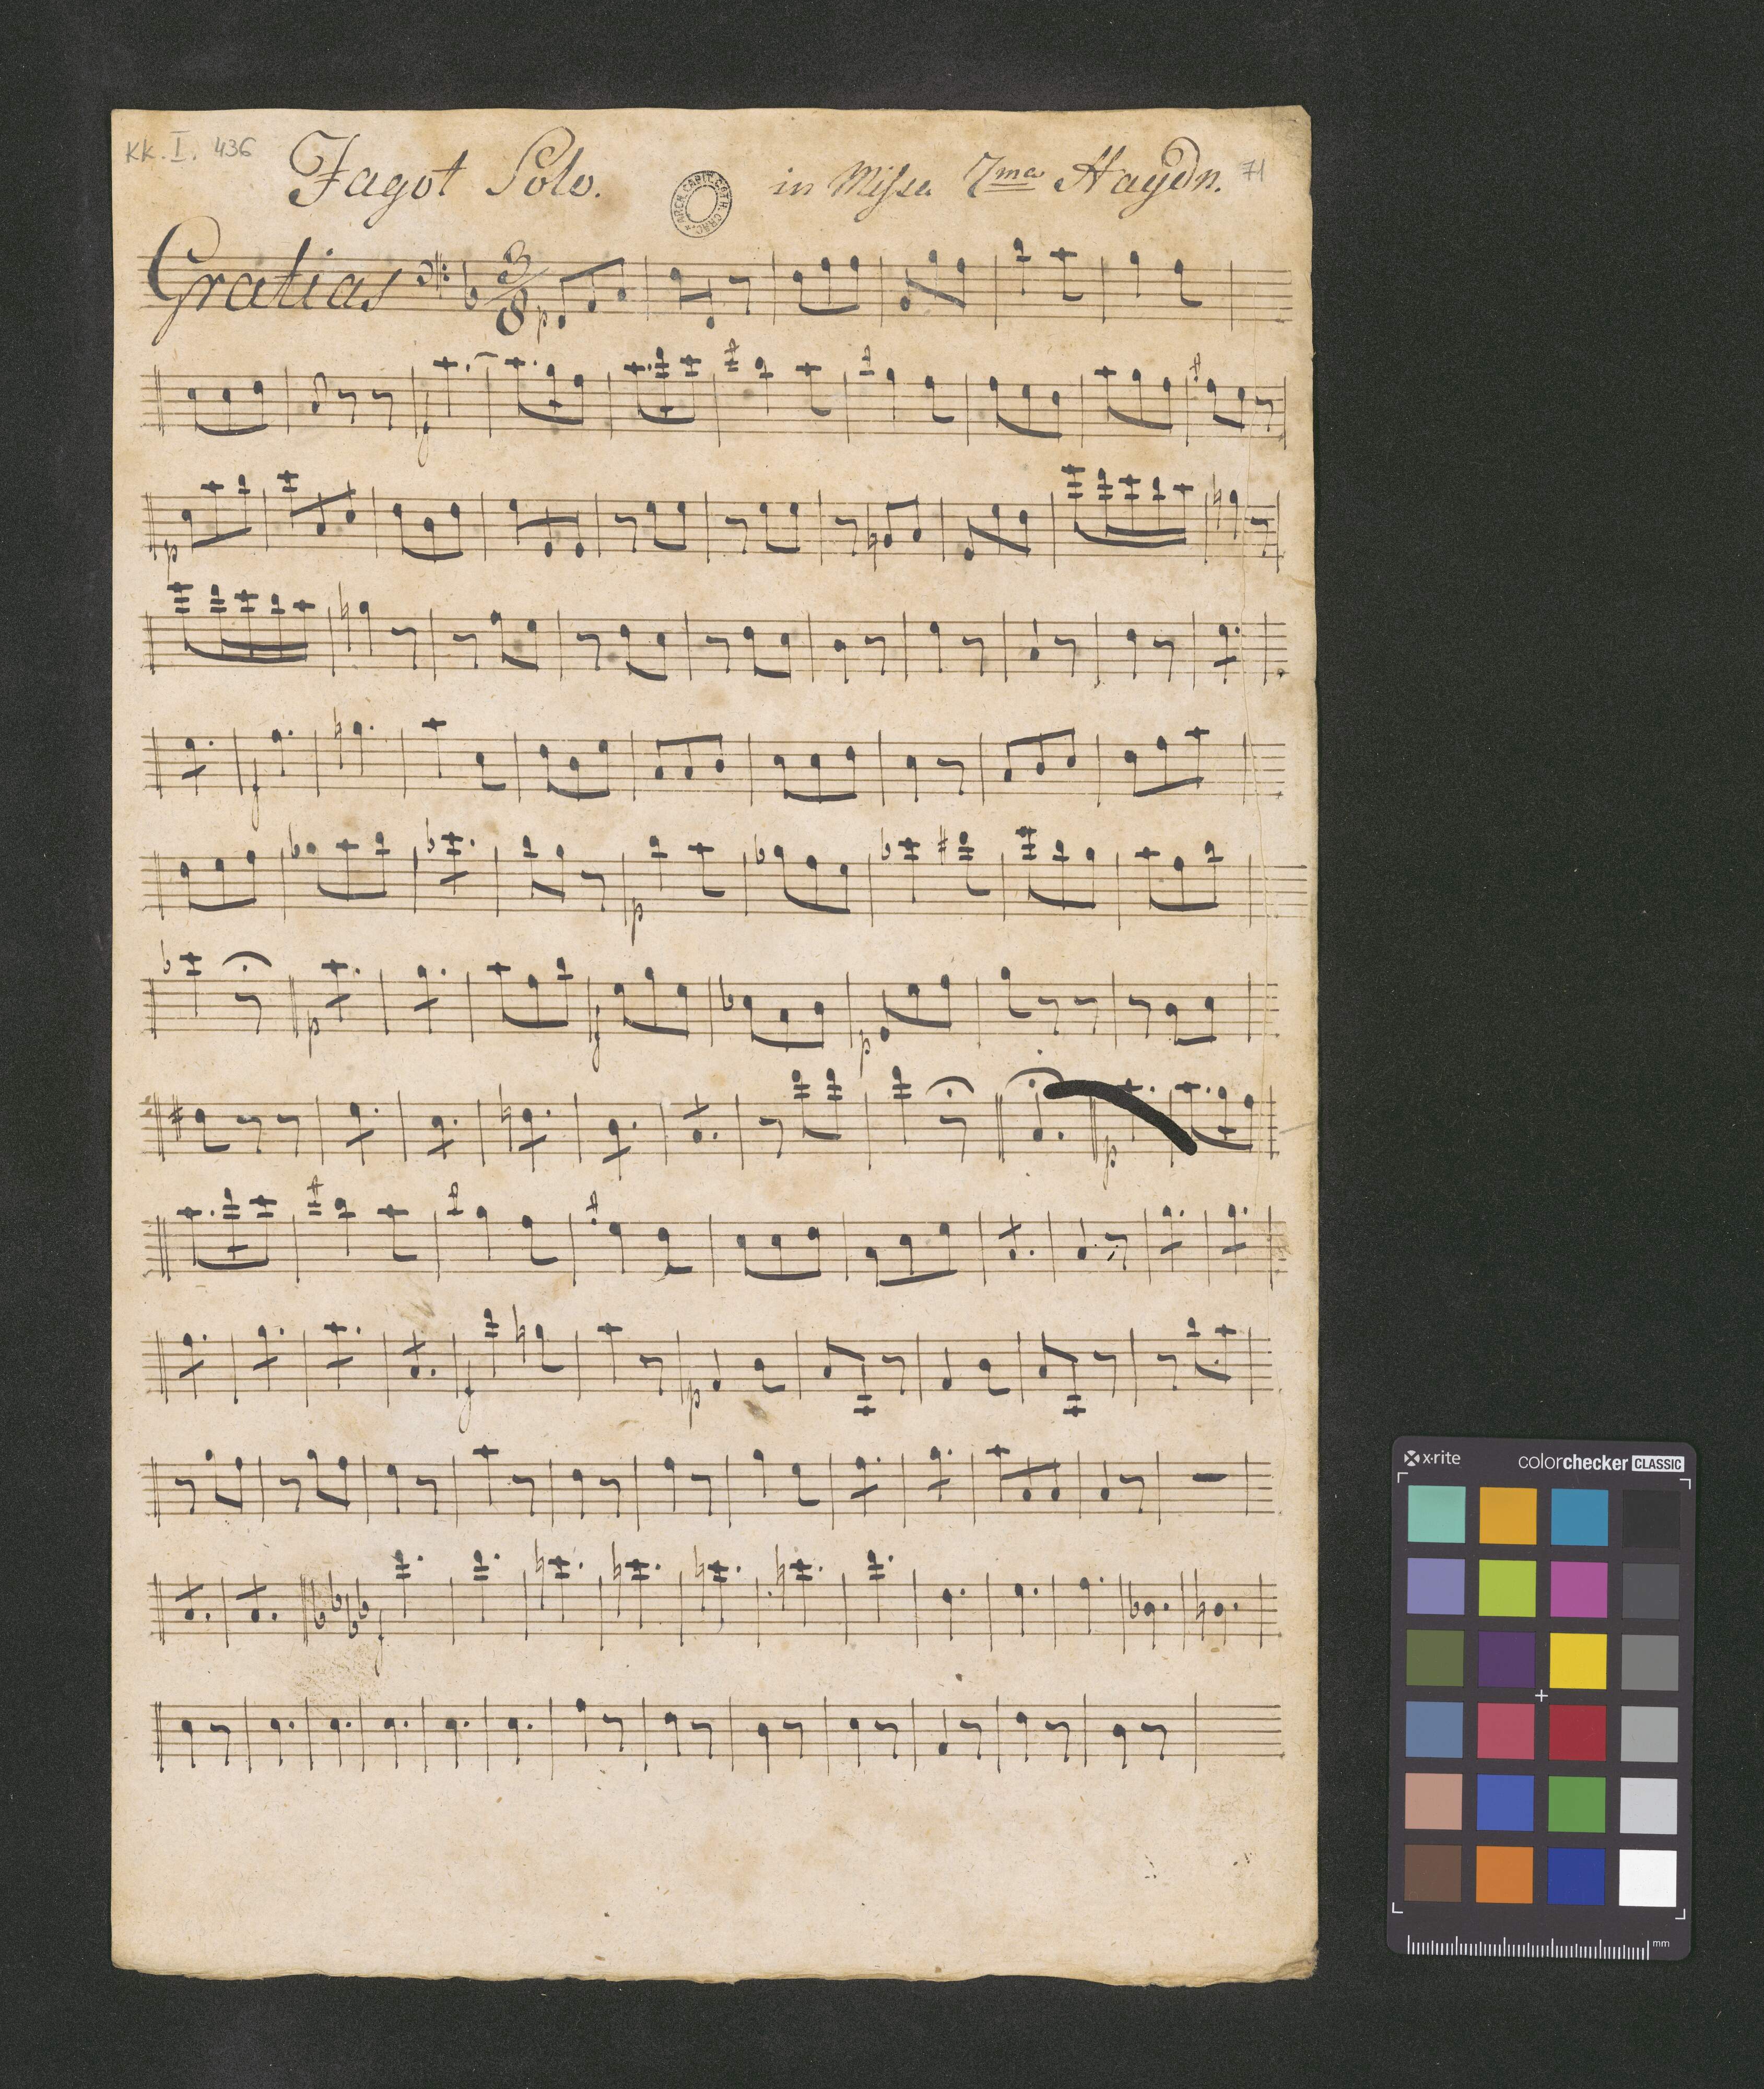 KK. I. 436
Fagot Solo. in Missa 7ma Haydn. 71
ARCH. CAPIT. CATH. CRAC.
Gratias 3/8 p
f
p
f
p
p f p
p
f p
f
x-rite colorchecker CLASSIC
mm